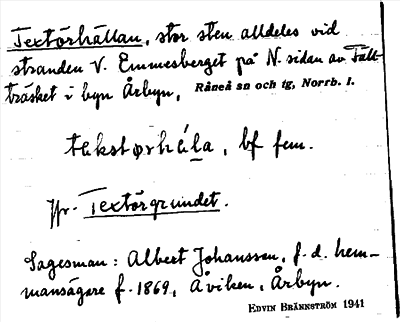 Textörhällan, stor sten alldeles vid
stranden V. Emmesberget på N. sidan av Fält-
träsket i byn Årbyn, Råneå sn och tg, Norrb. l.
tekstørhála, bf fem.
Jfr. Textörgrundet.
Sagesman: Albert Johansson, f.d. hem-
mansägare f. 1869, Åviken, Årbyn.
EDVIN BRÄNNSTRÖM 1941